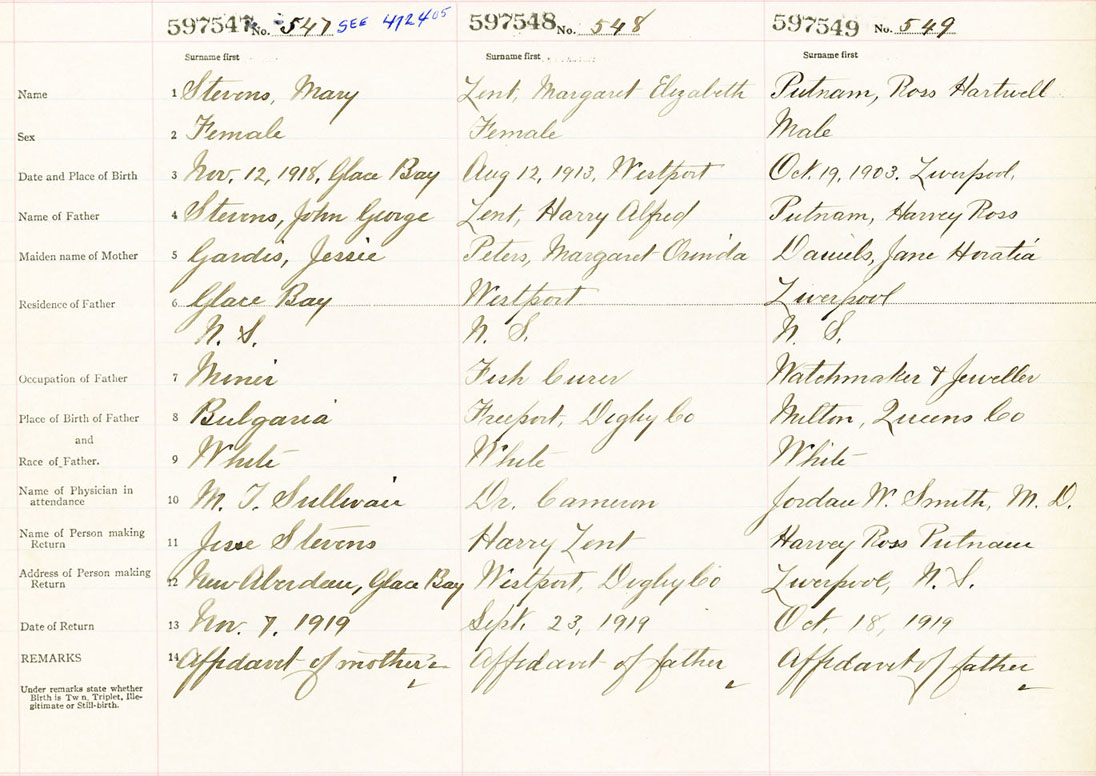 597547 No. 547 SEE 412405 597548 No. 548 597549 No. 549
Surname first Surname first Surname first
Name 1 Stevens, Mary Lent, Margaret Elizabeth Putnam, Ross Hartwell
Sex 2 Female Female Male
Date and Place of Birth 3 Nov. 12, 1918, Glace Bay Aug 12, 1913, Westport Oct. 19, 1903. Liverpool.
Name of Father 4 Stevens, John George Lent, Harry Alfred Putnam, Harvey Ross
Maiden name of Mother 5 Gardis, Jessie Peters, Margaret Orinda Daniels, Jane Horatia
Residence of Father 6 Glace Bay Westport Liverpool
N. S. N. S. N. S.
Occupation of Father 7 Miner Fish Curer Watchmaker & Jeweller
Place of Birth of Father 8 Bulgaria Freeport, Digby Co Milton, Queens Co
and
Race of Father. 9 White White White
Name of Physician in
attendance 10 M. T. Sullivan Dr. Cameron Jordan W. Smith, M. D.
Name of Person making
Return 11 Jesse Stevens Harry Lent Harvey Ross Putnam
Address of Person making
Return 12 New Aberdeen, Glace Bay Westport, Digby Co Liverpool, N. S.
Date of Return 13 Nov. 7, 1919 Sept. 23, 1919 Oct. 18, 1919
REMARKS 14 Affidavit of mother Affidavit of father Affidavit of father
Under remarks state whether
Birth is Tw n, Triplet, Ille-
gitimate or Still-birth.